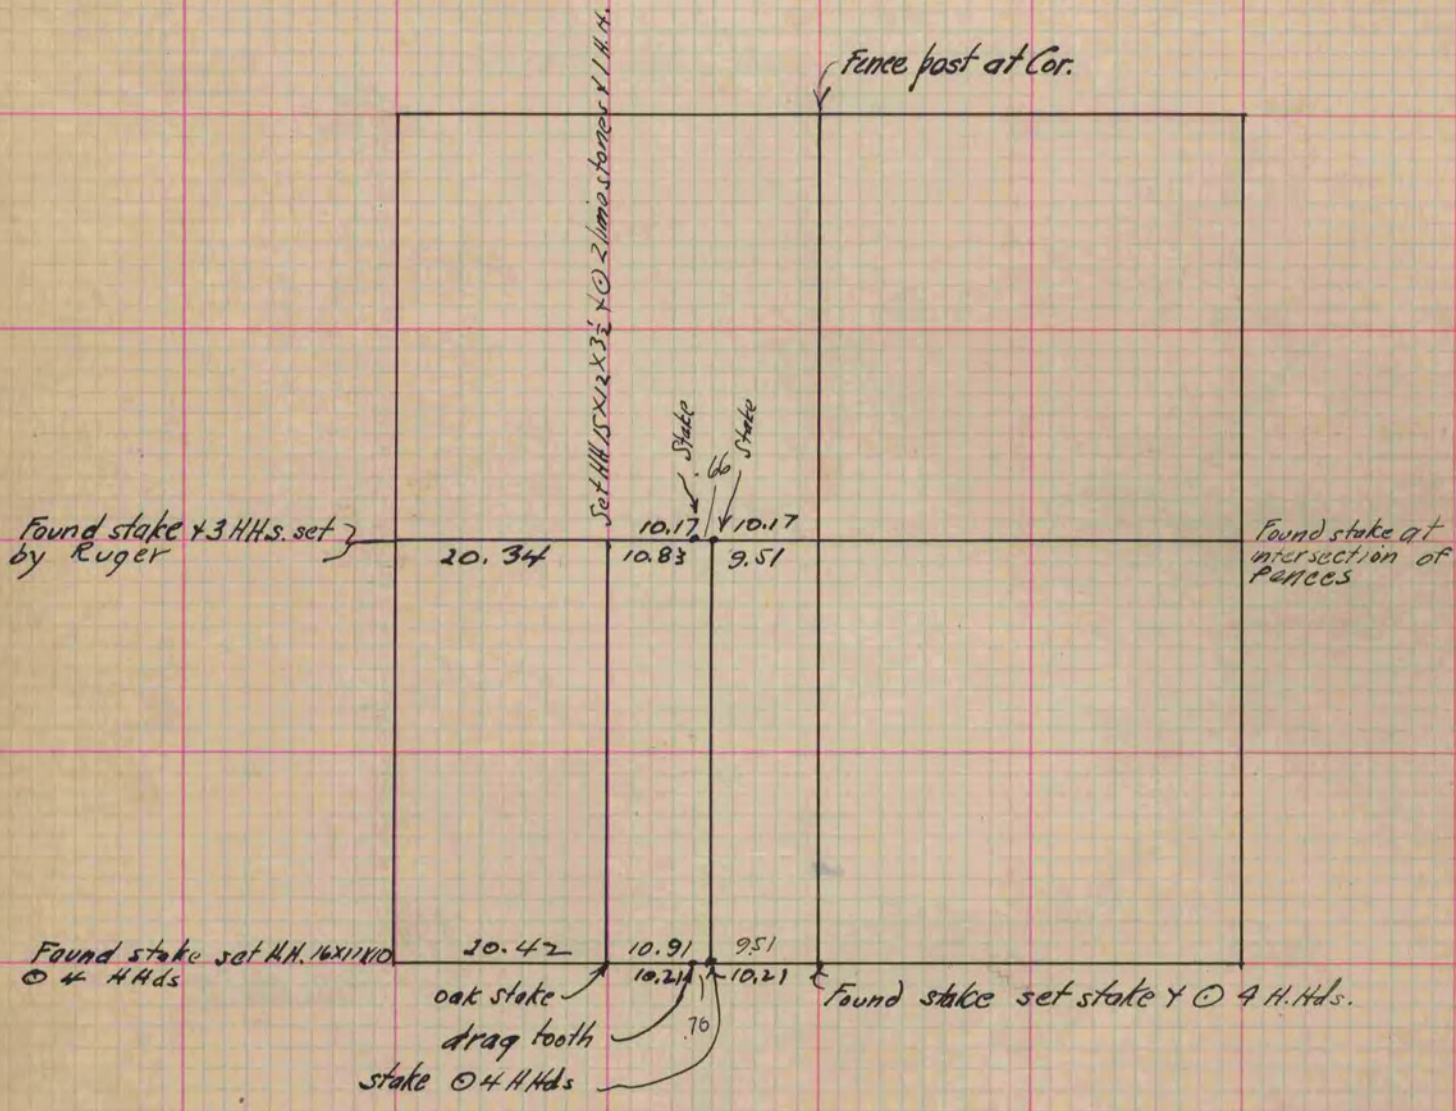 Fence post at Cor.
Set HH 15X12X3½ + ⊙ 2 limestones + 1 H.H.
Stake
.66
Stake
Found stake + 3 HHs. set
by Ruger
10.17
10.17
20.34
10.83
9.51
Found stake at
intersection of
Fences
Found stake set H.H. 16X17X10
⊙ 4 HHds
20.42
10.91
9.51
10.21
10.21
oak stake
drag tooth
.70
stake ⊙ 4 HHds
Found stake set stake + ⊙ 4 H.Hds.